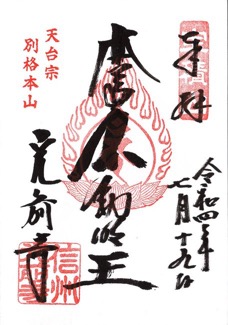 奉拝
令和四年
七月十九日
本尊不動明王
天台宗
別格本山
元前寺
信州